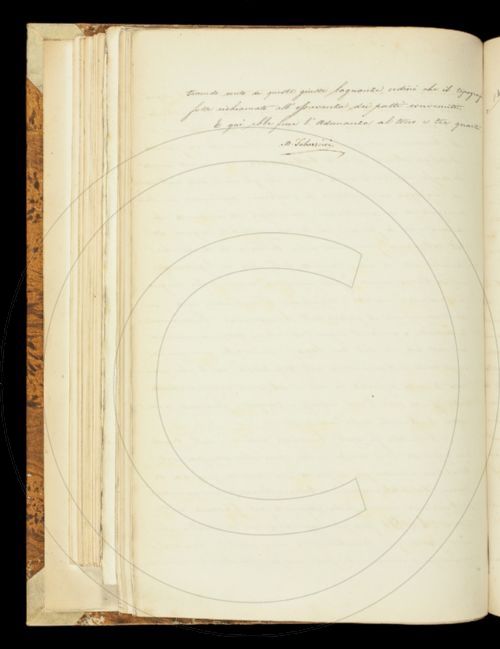 tenendo conto di queste giuste lagnanze ordinò che il tipograf
fosse richiamato all'osservanza dei patti convenuti.
E qui ebbe fine l'Adunanza al tocco e tre quarti